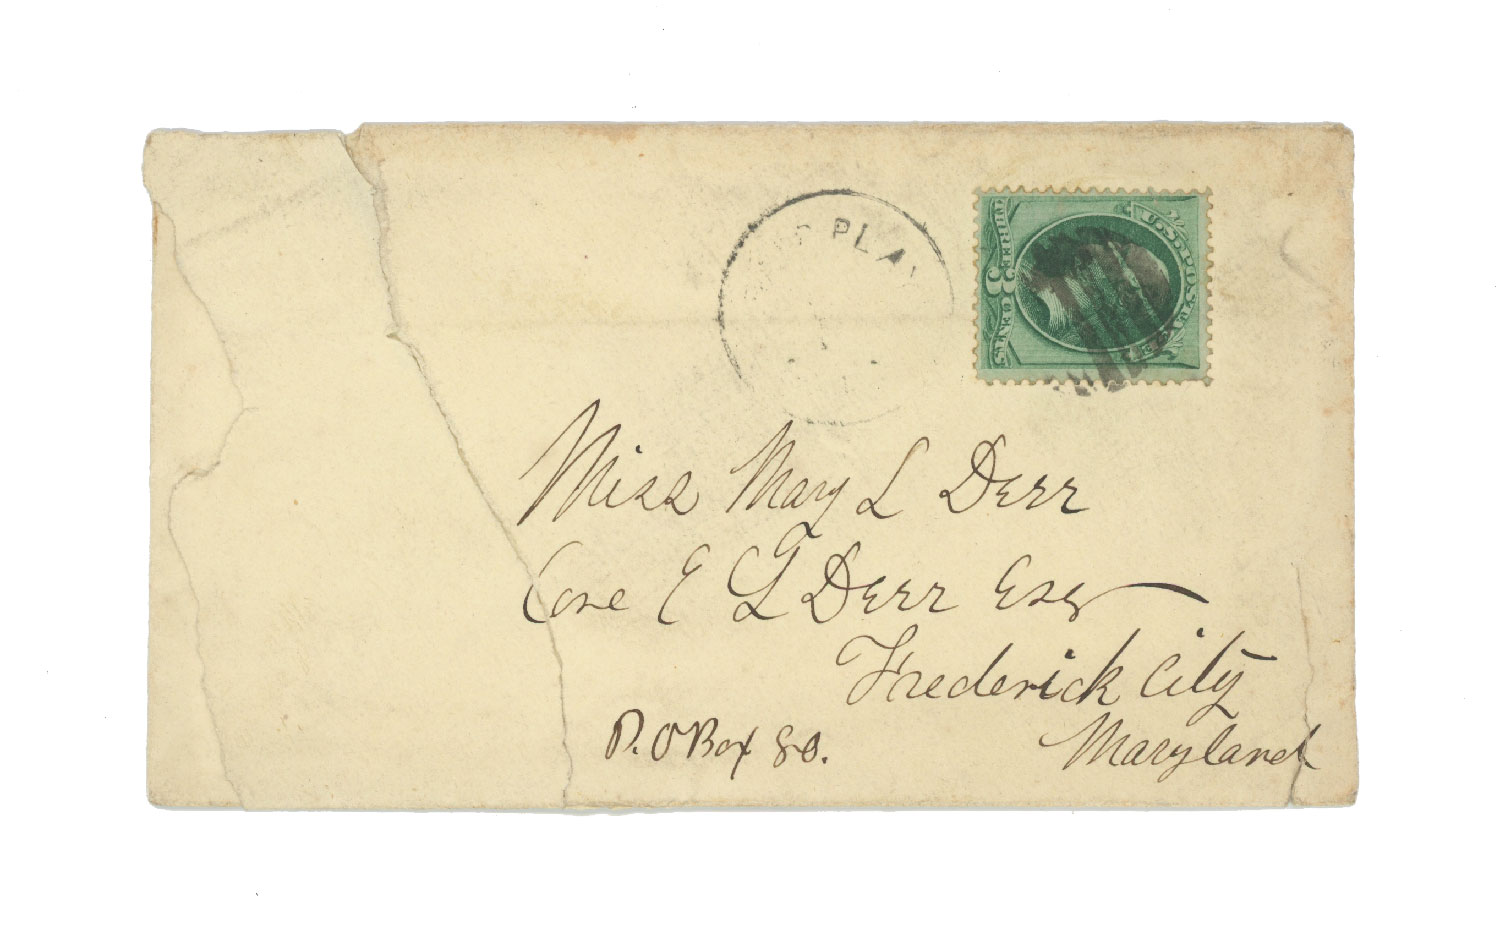 PLA
U.S. POSTAGE
THREE 3 CENTS
Miss Mary L Derr
Care E L Derr Esq
Frederick City
P. O Box 80.
Maryland